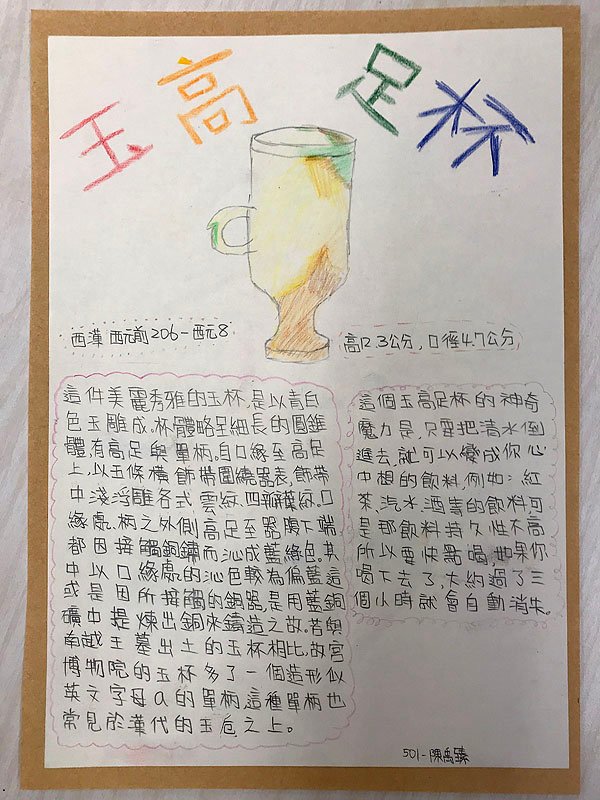 玉高足杯
西漢 西元前206-西元8
高12.3公分,口徑4.7公分
這件美麗秀雅的玉杯,是以青白
色玉雕成。杯體略呈細長的圓錐
體,有高足與單柄。自口緣至高足
上,以五條橫飾帶圍繞器表,飾帶
中淺浮雕各式雲紋、四瓣葉紋。口
緣處、柄之外側高足至器腹下端
都因接觸銅鏽而沁成藍綠色。其
中以口緣處的沁色較為偏藍這
或是因所接觸的銅器是用藍銅
礦中提煉出銅來鑄造之故。若與
南越王墓出土的玉杯相比,故宮
博物院的玉杯多了一個造形似
英文字母a的單柄,這種單柄也
常見於漢代的玉卮之上。
這個玉高足杯的神奇
魔力是,只要把清水倒
進去,就可以變成你心
中想的飲料,例如:紅
茶、汽水、酒…等的飲料,可
是那飲料持久性不高
所以要快點喝,如果你
喝下去了,大約過了三
個小時就會自動消失。
501-陳禹臻